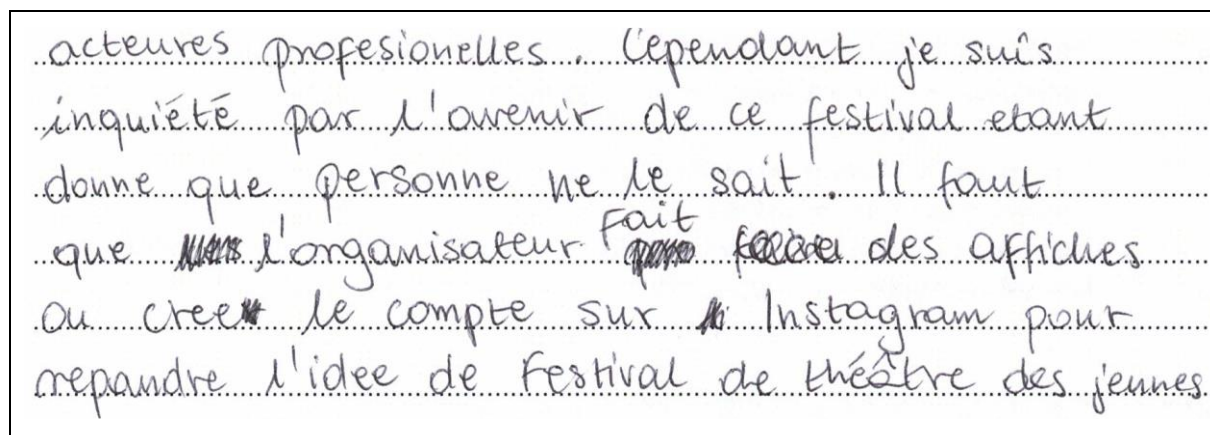 acteures profesionelles. Cependant je suis
inquiété par l'avenir de ce festival etant
donne que personne ne le sait. Il faut
que l'organisateur fait des affiches
ou cree le compte sur Instagram pour
repandre l'idee de Festival de théâtre des jeunes